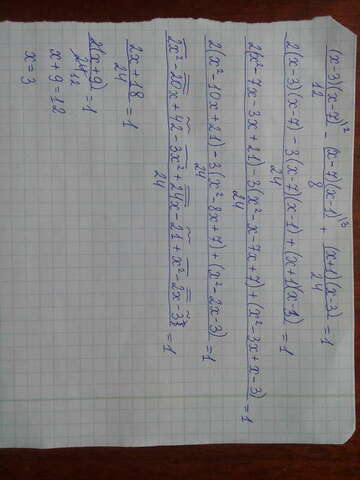 (x-3)(x-7)\2 / 12 - (x-7)(x-1)\3 / 8 + (x+1)(x-3) / 24 = 1
2(x-3)(x-7) - 3(x-7)(x-1) + (x+1)(x-3) / 24 = 1
2(x²-7x-3x+21)-3(x²-x-7x+7)+(x²-3x+x-3) / 24 = 1
2(x²-10x+21)-3(x²-8x+7)+(x²-2x-3) / 24 = 1
2x²-20x+42-3x²+24x-21+x²-2x-3 / 24 = 1
2x+18 / 24 = 1
2(x+9) / 24 12 = 1
x+9=12
x=3